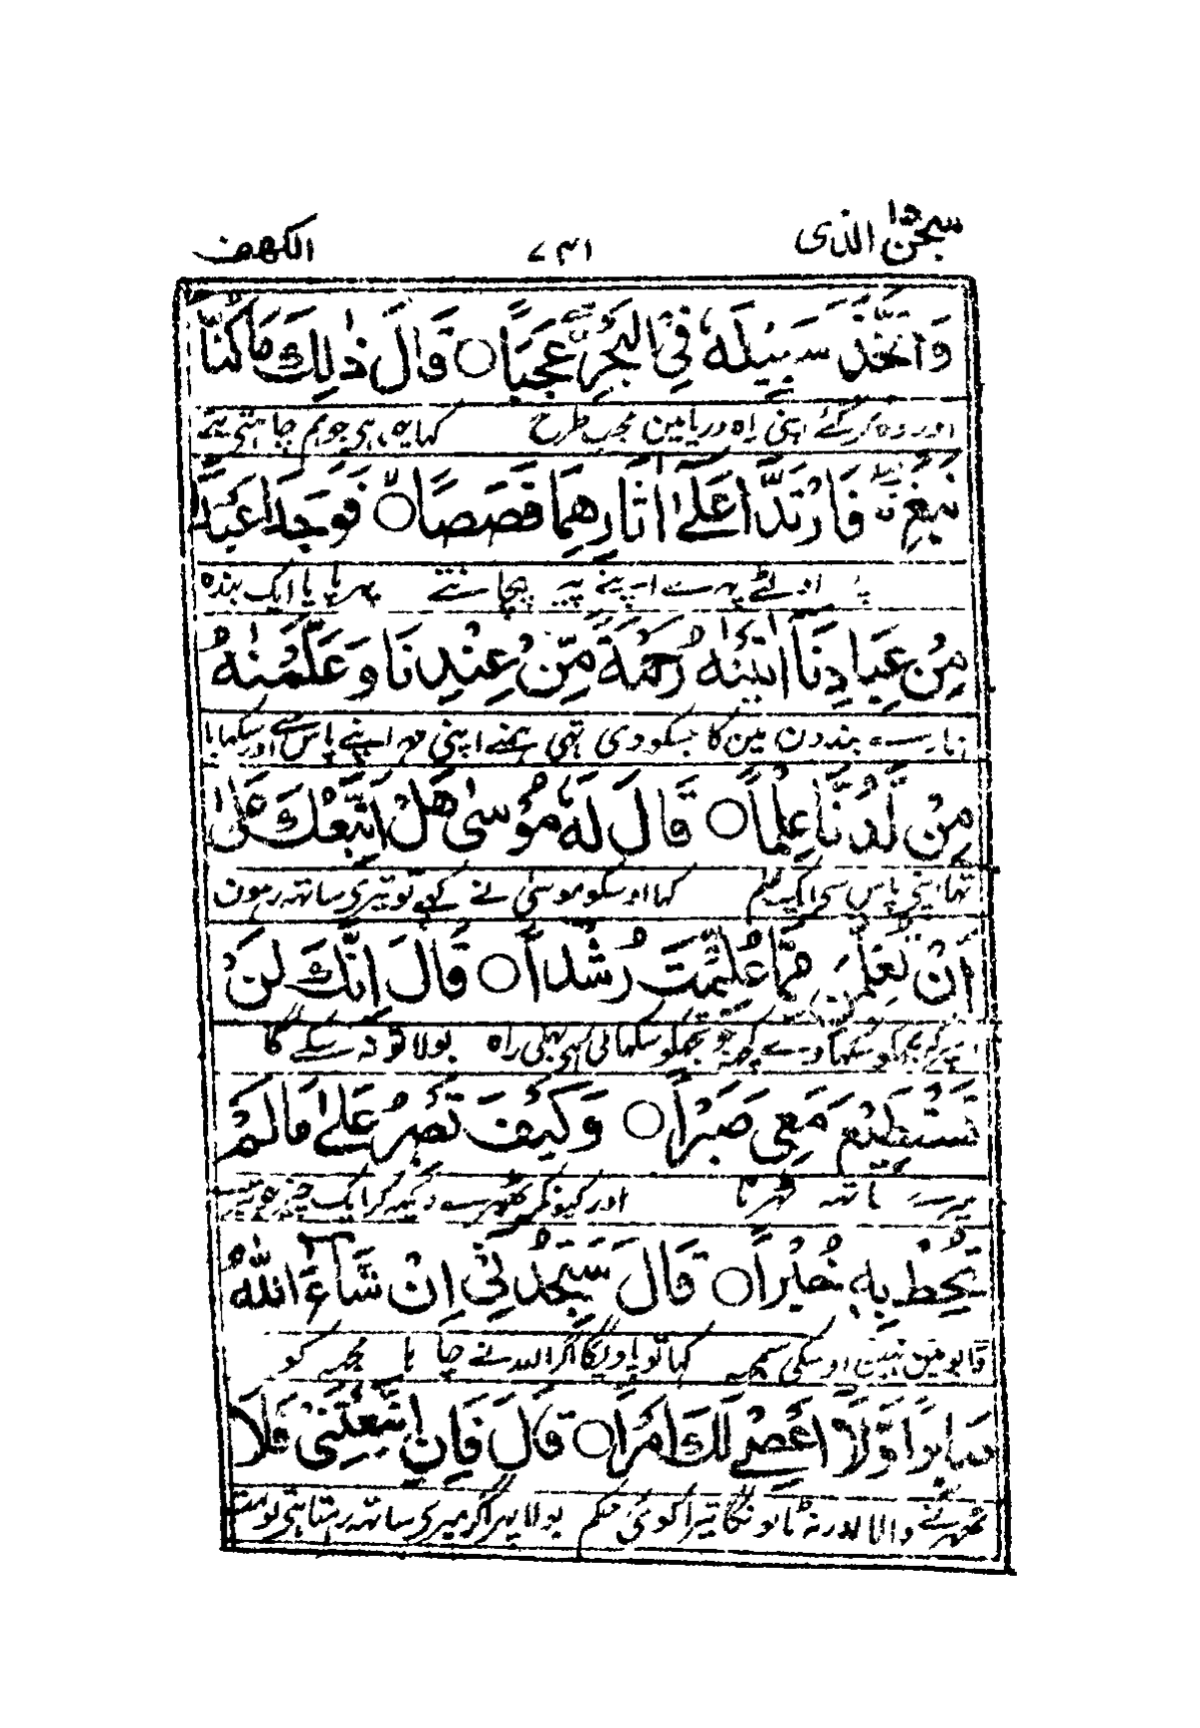 سبحن الذی ١٥ ٧٣١ الكهف
وَاتَّخَذَ سَبِيْلَهٗ فِي الْبَحْرِ عَجَبًا ○ قَالَ ذٰلِكَ مَا كُنَّا
اور وہ کر گئے اپنی راہ دریا مین عجب طرح کہا یہی ہی جو ہم چاہتی تہے
نَبْغِ فَارْتَدَّا عَلٰٓى اٰثَارِهِمَا قَصَصًا ○ فَوَجَدَا عَبْدًا
اولٹے پہرے اپنے پیر پہچانتے پہر پایا ایک بندہ
مِّنْ عِبَادِنَآ اٰتَيْنٰهُ رَحْمَةً مِّنْ عِنْدِنَا وَعَلَّمْنٰهُ
ہمارے بندون مین کا جسکو دی تہی ہمنے اپنی مہر اپنے پاس سے اور سکہایا
مِنْ لَّدُنَّا عِلْمًا ○ قَالَ لَهٗ مُوْسٰى هَلْ اَتَّبِعُكَ عَلٰٓى
تہا اپنی پاس سی ایک علم کہا اوسکو موسیٰ نے کہے تو تیری ساتہہ رہون
اَنْ تُعَلِّمَنِ مِمَّا عُلِّمْتَ رُشْدًا ○ قَالَ اِنَّكَ لَنْ
مجکو سکہا دے کچہہ جو تجہکو سکہائی ہی بہلی راہ بولا تو نہ سکے گا
تَسْتَطِيْعَ مَعِيَ صَبْرًا ○ وَكَيْفَ تَصْبِرُ عَلٰى مَا لَمْ
میرے ساتہہ ٹہرنا اور کیونکر ٹہرے دیکہہ کر ایک چیز جو تیرے
تُحِطْ بِهٖ خُبْرًا ○ قَالَ سَتَجِدُنِيْٓ اِنْ شَآءَ اللّٰهُ
قابو مین نہین اوسکی سمجہہ کہا تو پاویگا اگر اللہ نے چاہا مجہہ کو
صَابِرًا وَّلَآ اَعْصِيْ لَكَ اَمْرًا ○ قَالَ فَاِنِ اتَّبَعْتَنِيْ فَلَا
ٹہرنے والا اور نہ ٹالونگا تیرا کوئی حکم بولا پہر اگر میری ساتہہ رہتا ہی تو مت